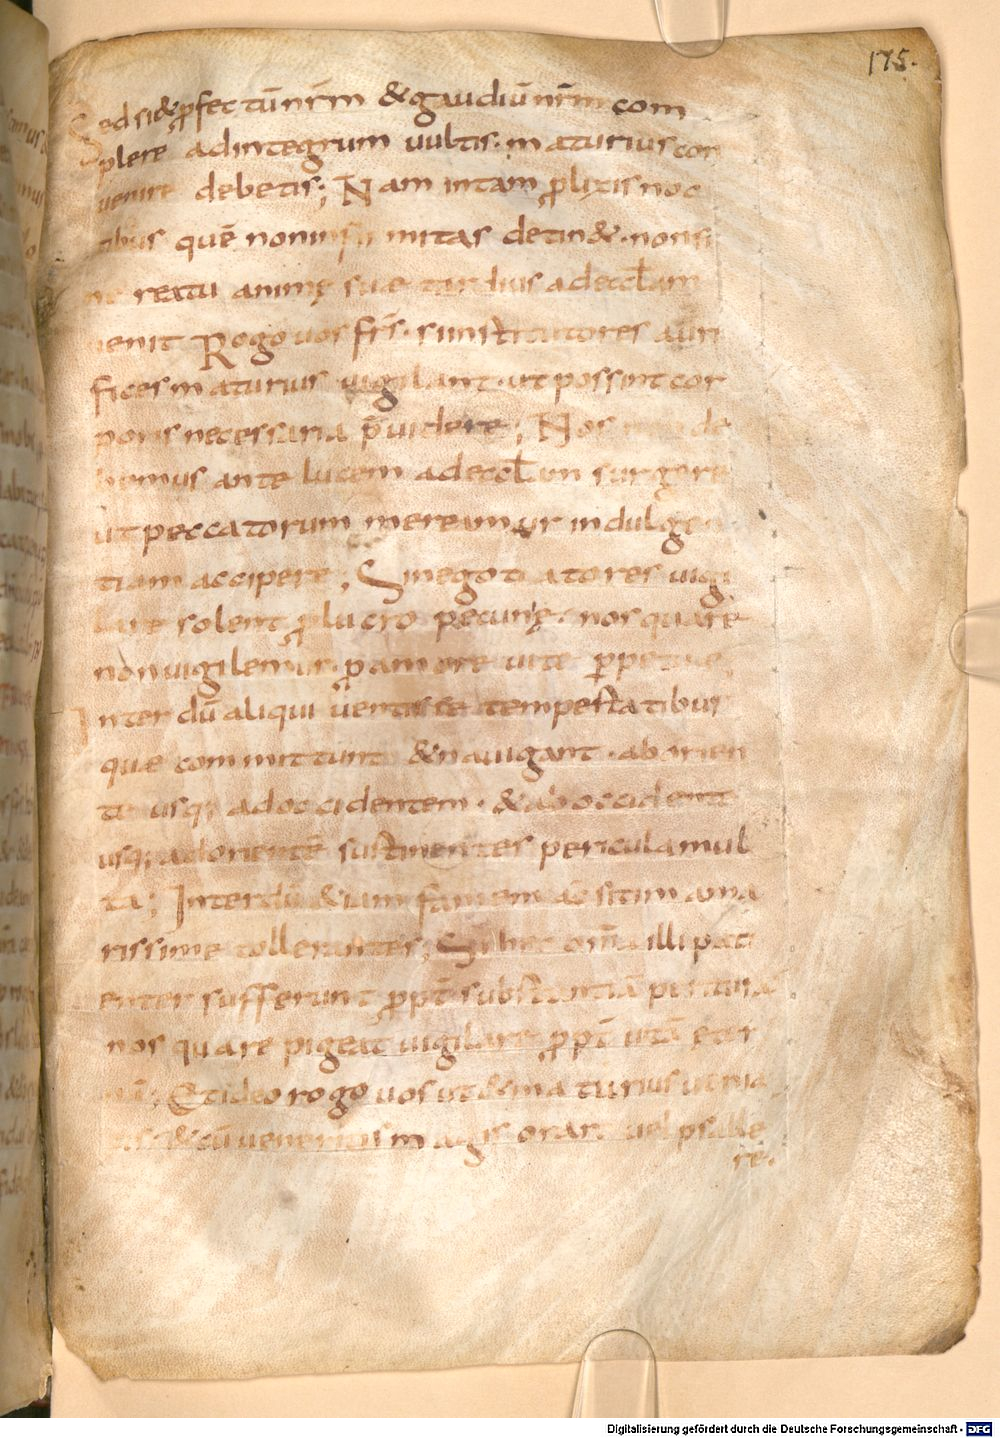 175.
Sed si & ꝓfectū nr̄m & gaudiū nr̄m com
plere ad integrum vultis. maturius con
venire debetis; Nam in tam ꝓlixis noc
tibus quē non infirmitas detin&. non si
ne reatu animę suae tardius ad eccl̄am
uenit Rogo uos fr̄s. si institutores auri
fices maturius uigilant. ut possint cor
poris necessaria p̄uidere; Nos non de
bemus ante lucem ad eccl̄am surgere
ut peccatorum mereamur indulgen
tiam accipere; Si negotiatores uigi
lare solent ꝓ lucro pecunię. nos quare
non uigilemur. ꝓ amore uite ꝑpetue;
Interdū aliqui uentis se tempestatibus
quae committunt & nauigant. ab orien
te usq; ad occidentem. & ab occidente
usq; ad orientē sustinentes pericula mul
ta; Interdū &iam famem ac sitim ama
rissime tollerantes; Si hec om̄a illi pati
enter sufferunt ꝓpt̄ substantiā periturā
nos quare pigeat uigilare ꝓpt̄ uitā ęter
nā; Et ideo rogo uos ut & maturius uenia
tis. & cū ueneritis magis orare uel psalle
re.
Digitalisierung gefördert durch die Deutsche Forschungsgemeinschaft - DFG